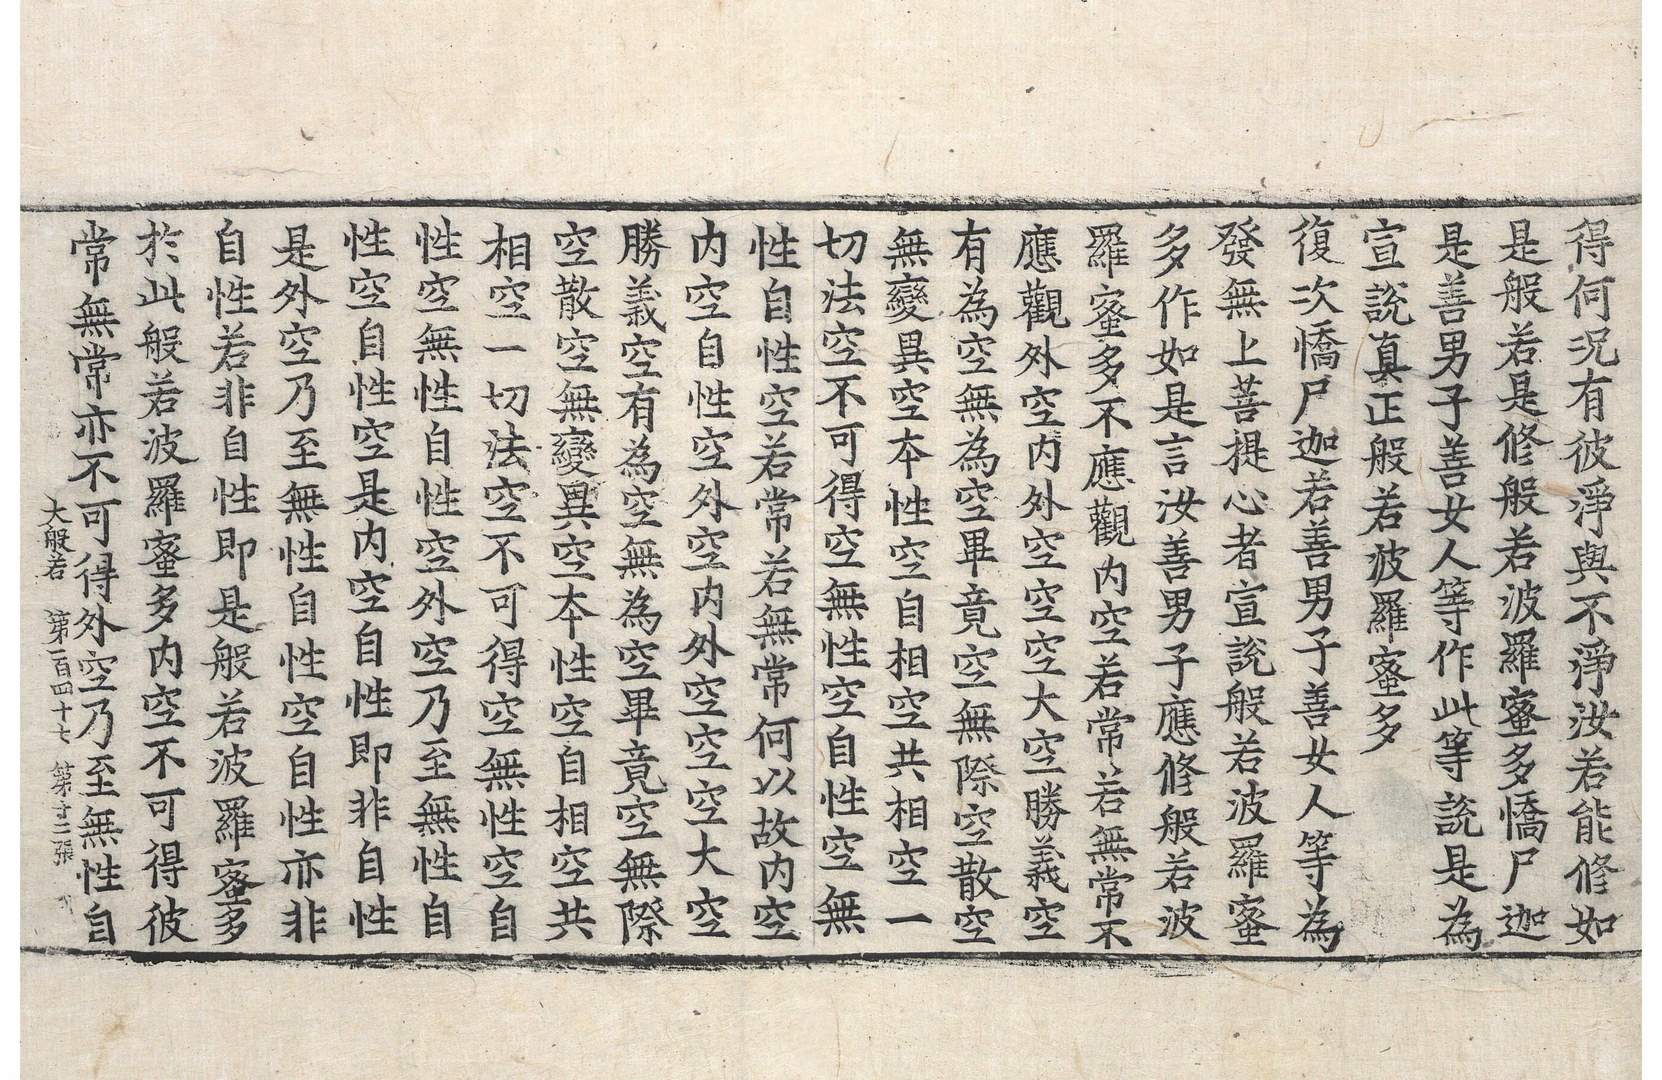 得何況有彼淨與不淨汝若能修如
是般若是修般若波羅蜜多憍尸迦
是善男子善女人等作此等說是為
宣說真正般若波羅蜜多
復次憍尸迦若善男子善女人等為
發無上菩提心者宣說般若波羅蜜
多作如是言汝善男子應修般若波
羅蜜多不應觀內空若常若無常不
應觀外空內外空空空大空勝義空
有為空無為空畢竟空無際空散空
無變異空本性空自相空共相空一
切法空不可得空無性空自性空無
性自性空若常若無常何以故內空
內空自性空外空內外空空空大空
勝義空有為空無為空畢竟空無際
空散空無變異空本性空自相空共
相空一切法空不可得空無性空自
性空無性自性空外空乃至無性自
性空自性空是內空自性即非自性
是外空乃至無性自性空自性亦非
自性若非自性即是般若波羅蜜多
於此般若波羅蜜多內空不可得彼
常無常亦不可得外空乃至無性自
大般若 第一百四十七 第十二張